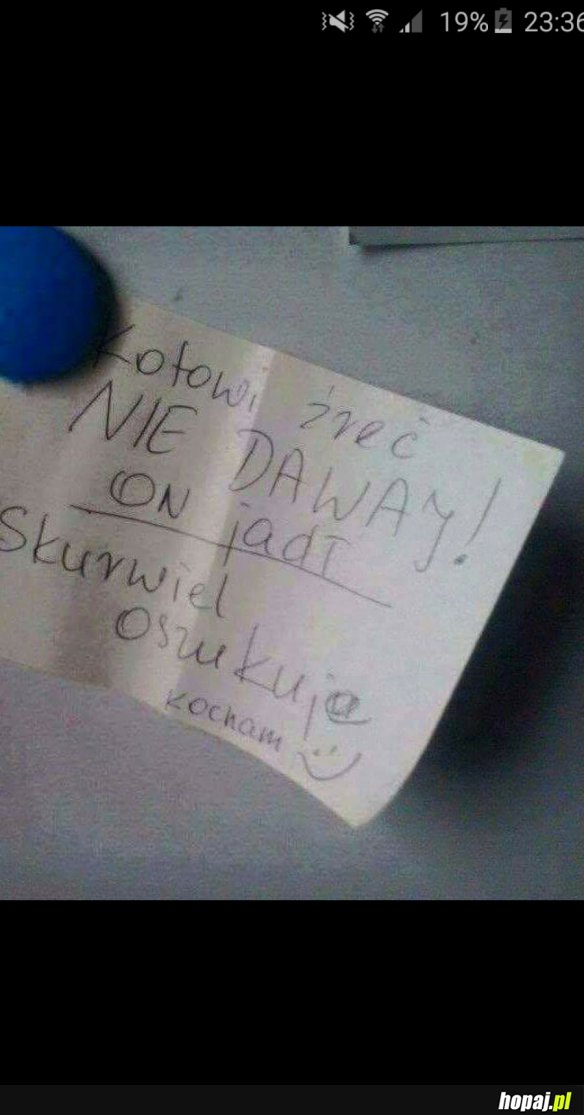 19% 23:36
Kotowi żreć
NIE DAWAJ!
ON jadł
Skurwiel
oszukuje
kocham
hopaj.pl